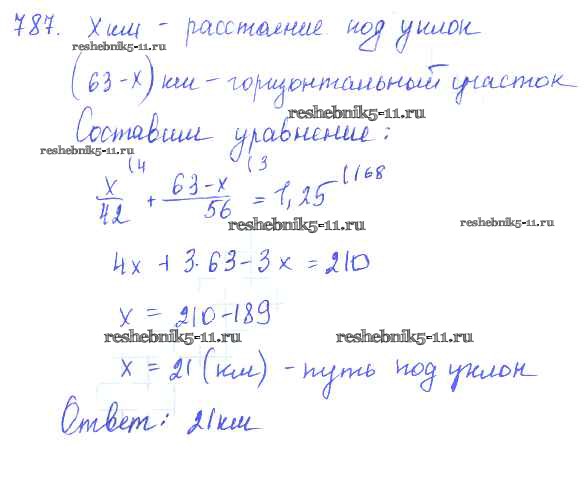 787. x км - расстояние под уклон
reshebnik5-11.ru
(63-x) км - горизонтальный участок
reshebnik5-11.ru
Составим уравнение:
reshebnik5-11.ru
x/42 (4 + 63-x/56 (3 = 1,25 (168
reshebnik5-11.ru reshebnik5-11.ru
4x + 3·63-3x = 210
x = 210-189
reshebnik5-11.ru reshebnik5-11.ru
x = 21 (км) - путь под уклон
Ответ: 21км